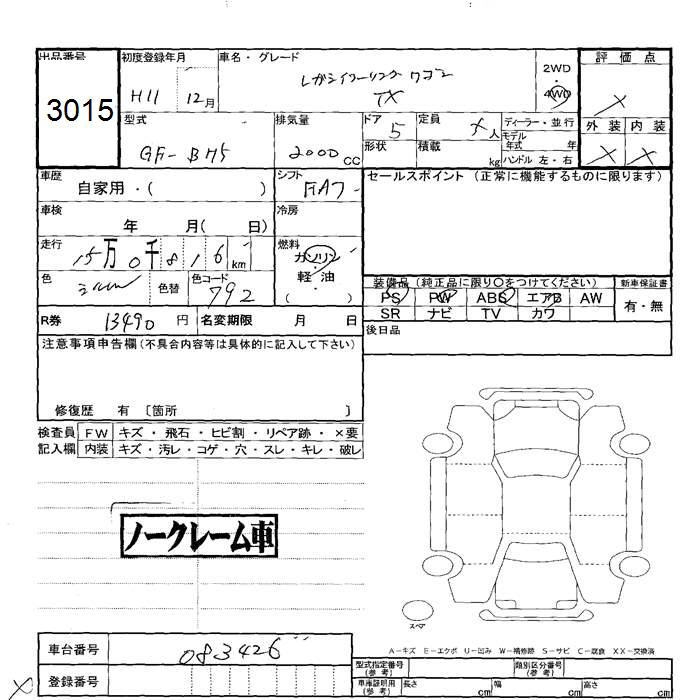 出品番号
3015
初度登録年月 H11 12月
車名・グレード レガシィツーリングワゴン
TX
2WD
・
4WD
評価点
外装 内装
型式 GF-BH5
排気量 2000 CC
ドア 5
形状
定員 人
積載 kg
ディーラー・並行
モデル
年式 年
ハンドル 左・右
車歴 自家用・( )
シフト FA7
セールスポイント (正常に機能するものに限ります)
車検 年 月( 日)
冷房
走行 15万0千816km
燃料 ガソリン
・
軽・油
( )
色 シルバー 色替
色コード 792
装備品 (純正品に限り○をつけてください)
新車保証書
PS PW ABS エアB AW
有・無
SR ナビ TV カワ
R券 13490円
名変期限 月 日
後日品
注意事項申告欄(不具合内容等は具体的に記入して下さい)
修復歴 有 〔箇所 〕
検査員 FW キズ・飛石・ヒビ割・リペア跡・×要
記入欄 内装 キズ・汚レ・コゲ・穴・スレ・キレ・破レ
ノークレーム車
スペア
A-キズ E-エクボ U-凹み W-補修跡 S-サビ C-腐食 XX-交換済
車台番号 083426
登録番号
型式指定番号
(参考)
類別区分番号
(参考)
車庫証明用
(参考)
長さ cm
幅 cm
高さ cm